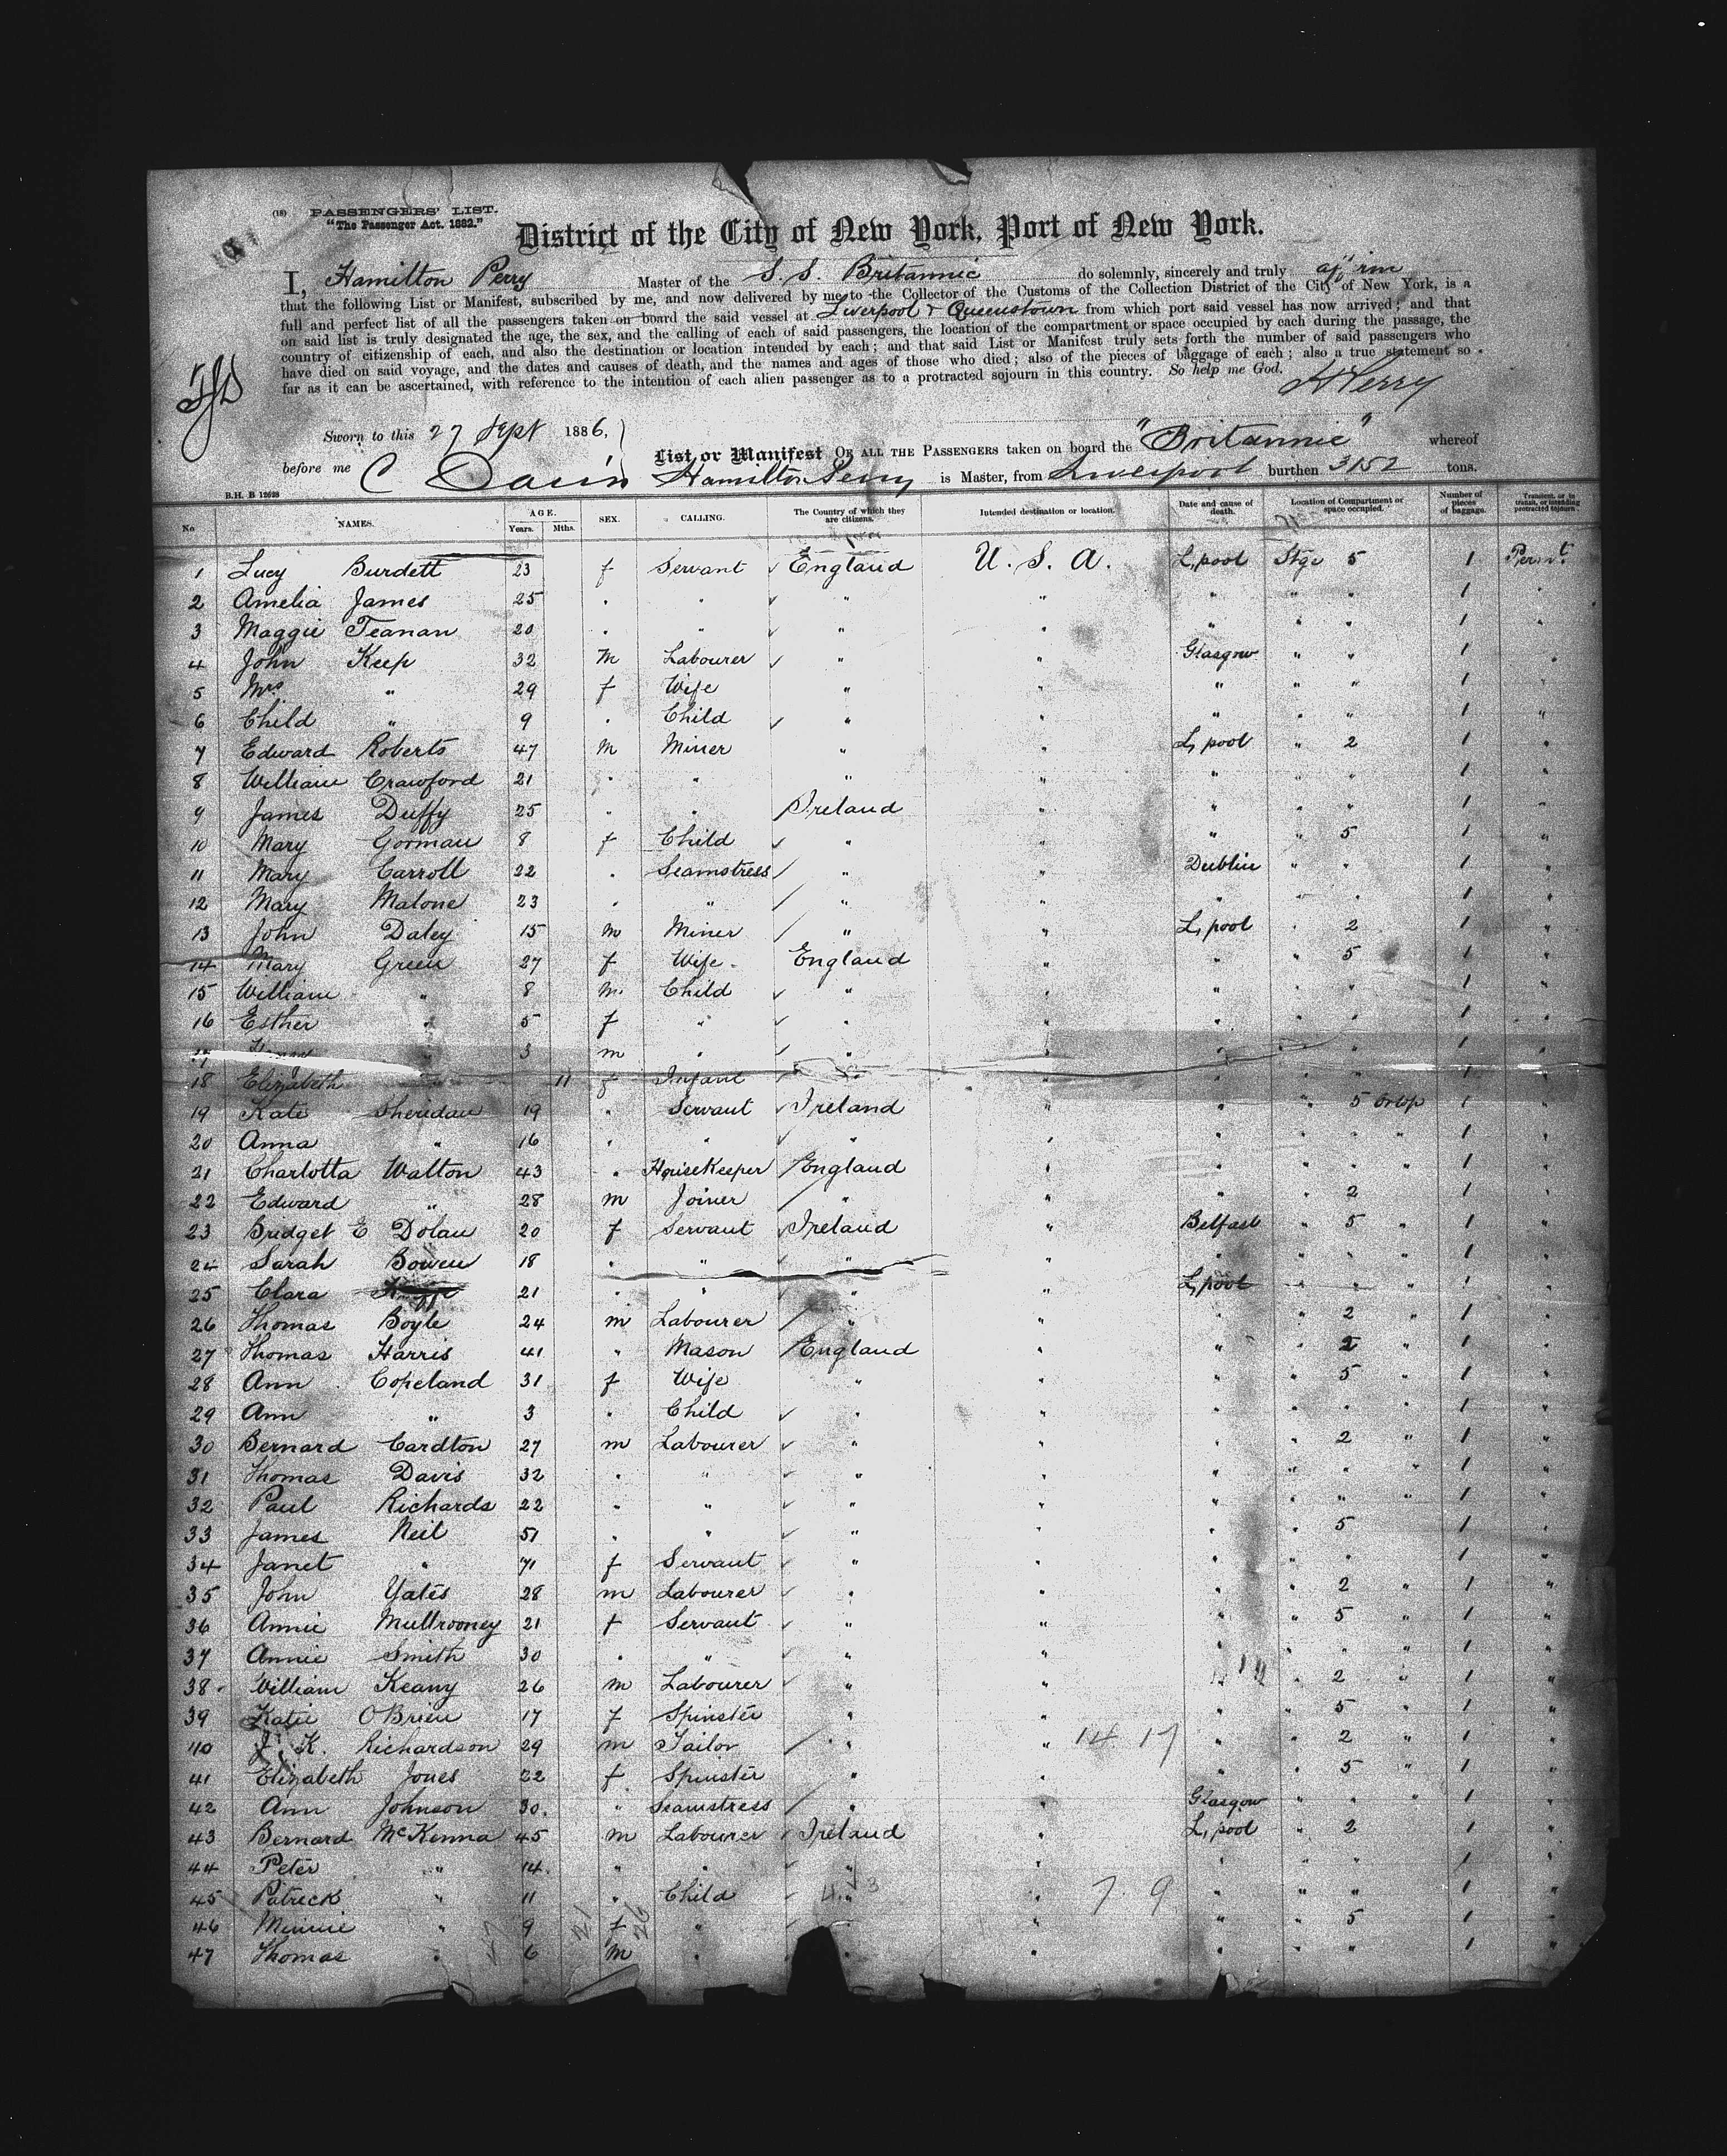 (18) PASSENGERS' LIST.
"The Passenger Act. 1882."
District of the City of New York, Port of New York.
I, Hamilton Perry Master of the S. S. Britannic do solemnly, sincerely and truly affirm
that the following List or Manifest, subscribed by me, and now delivered by me to the Collector of the Customs of the Collection District of the City of New York, is a
full and perfect list of all the passengers taken on board the said vessel at Liverpool & Queenstown from which port said vessel has now arrived; and that
on said list is truly designated the age, the sex, and the calling of each of said passengers, the location of the compartment or space occupied by each during the passage, the
country of citizenship of each, and also the destination or location intended by each; and that said List or Manifest truly sets forth the number of said passengers who
have died on said voyage, and the dates and causes of death, and the names and ages of those who died; also of the pieces of baggage of each; also a true statement so
far as it can be ascertained, with reference to the intention of each alien passenger as to a protracted sojourn in this country. So help me God.
HPerry
Sworn to this 27 Sept 1886,
before me C Davis
List or Manifest OF ALL THE PASSENGERS taken on board the "Britannic" whereof
Hamilton Perry is Master, from Liverpool burthen 3152 tons.
B.H. B 12628
No NAMES. AGE. Years. Mths. SEX. CALLING. The Country of which they are citizens. Intended destination or location. Date and cause of death. Location of Compartment or space occupied. Number of pieces of baggage. Transient, or in transit, or intending protracted sojourn.
1 Lucy Burdett 23 f Servant England U. S. A. L,pool Stge 5 1 Perm't.
2 Amelia James 25 " " " " " " " 1 "
3 Maggie Teanan 20 " " " " " " " 1 "
4 John Keep 32 M Labourer " " Glasgow " " 1 "
5 Mrs " 29 f Wife " " " " " 1 "
6 Child " 9 " Child " " " " " 1 "
7 Edward Roberts 47 M Miner " " L,pool " 2 1 "
8 William Crawford 21 " " " " " " " 1 "
9 James Duffy 25 " " Ireland " " " " 1 "
10 Mary Gorman 8 f Child " " " " 5 1 "
11 Mary Carroll 22 " Seamstress " " Dublin " " 1 "
12 Mary Malone 23 " " " " " " " 1 "
13 John Daley 15 M Miner " " L,pool " 2 1 "
14 Mary Green 27 f Wife England " " " 5 1 "
15 William " 8 M Child " " " " " 1 "
16 Esther " 5 f " " " " " " 1 "
17 " 3 m " " " " " " 1 "
18 Elizabeth 11 f Infant " " " " " 1 "
19 Kate Sheridan 19 " Servant Ireland " " " 5 Orlop 1 "
20 Anna " 16 " " " " " " " " 1 "
21 Charlotta Walton 43 " HouseKeeper England " " " " " 1 "
22 Edward " 28 m Joiner " " " " 2 1 "
23 Bridget E Dolan 20 f Servant Ireland " Belfast " 5 " 1 "
24 Sarah Bowen 18 " " " " " " " " 1 "
25 Clara 21 " " " " L,pool " " " 1 "
26 Thomas Boyle 24 m Labourer " " " " 2 " 1 "
27 Thomas Harris 41 " Mason England " " " 2 " 1 "
28 Ann Copeland 31 f Wife " " " " 5 " 1 "
29 Ann " 3 " Child " " " " " " 1 "
30 Bernard Cardton 27 m Labourer " " " " 2 " 1 "
31 Thomas Davis 32 " " " " " " " " 1 "
32 Paul Richards 22 " " " " " " " " 1 "
33 James Neil 51 " " " " " " 5 1 "
34 Janet " 71 f Servant " " " " " 1 "
35 John Yates 28 m Labourer " " " " 2 " 1 "
36 Annie Mullrooney 21 f Servant " " " " 5 " 1 "
37 Annie Smith 30 " " " " " " " " 1 "
38 William Keany 26 m Labourer " " " " 2 " 1 "
39 Katie O'Brien 17 f Spinster " " " " 5 " 1 "
40 J. K. Richardson 29 m Tailor " " 14 17 " " 2 " 1 "
41 Elizabeth Jones 22 f Spinster " " " " 5 " 1 "
42 Ann Johnson 30. " Seamstress " " Glasgow " " " 1 "
43 Bernard McKenna 45 m Labourer Ireland " L,pool " 2 1 "
44 Peter " 14. " " " " " " " 1 "
45 Patrick " 11 " Child " " 7 9 " " " 1 "
46 Minnie " 9 f " " " " " 5 1 "
47 Thomas " 6 M " " " " " " 1 "